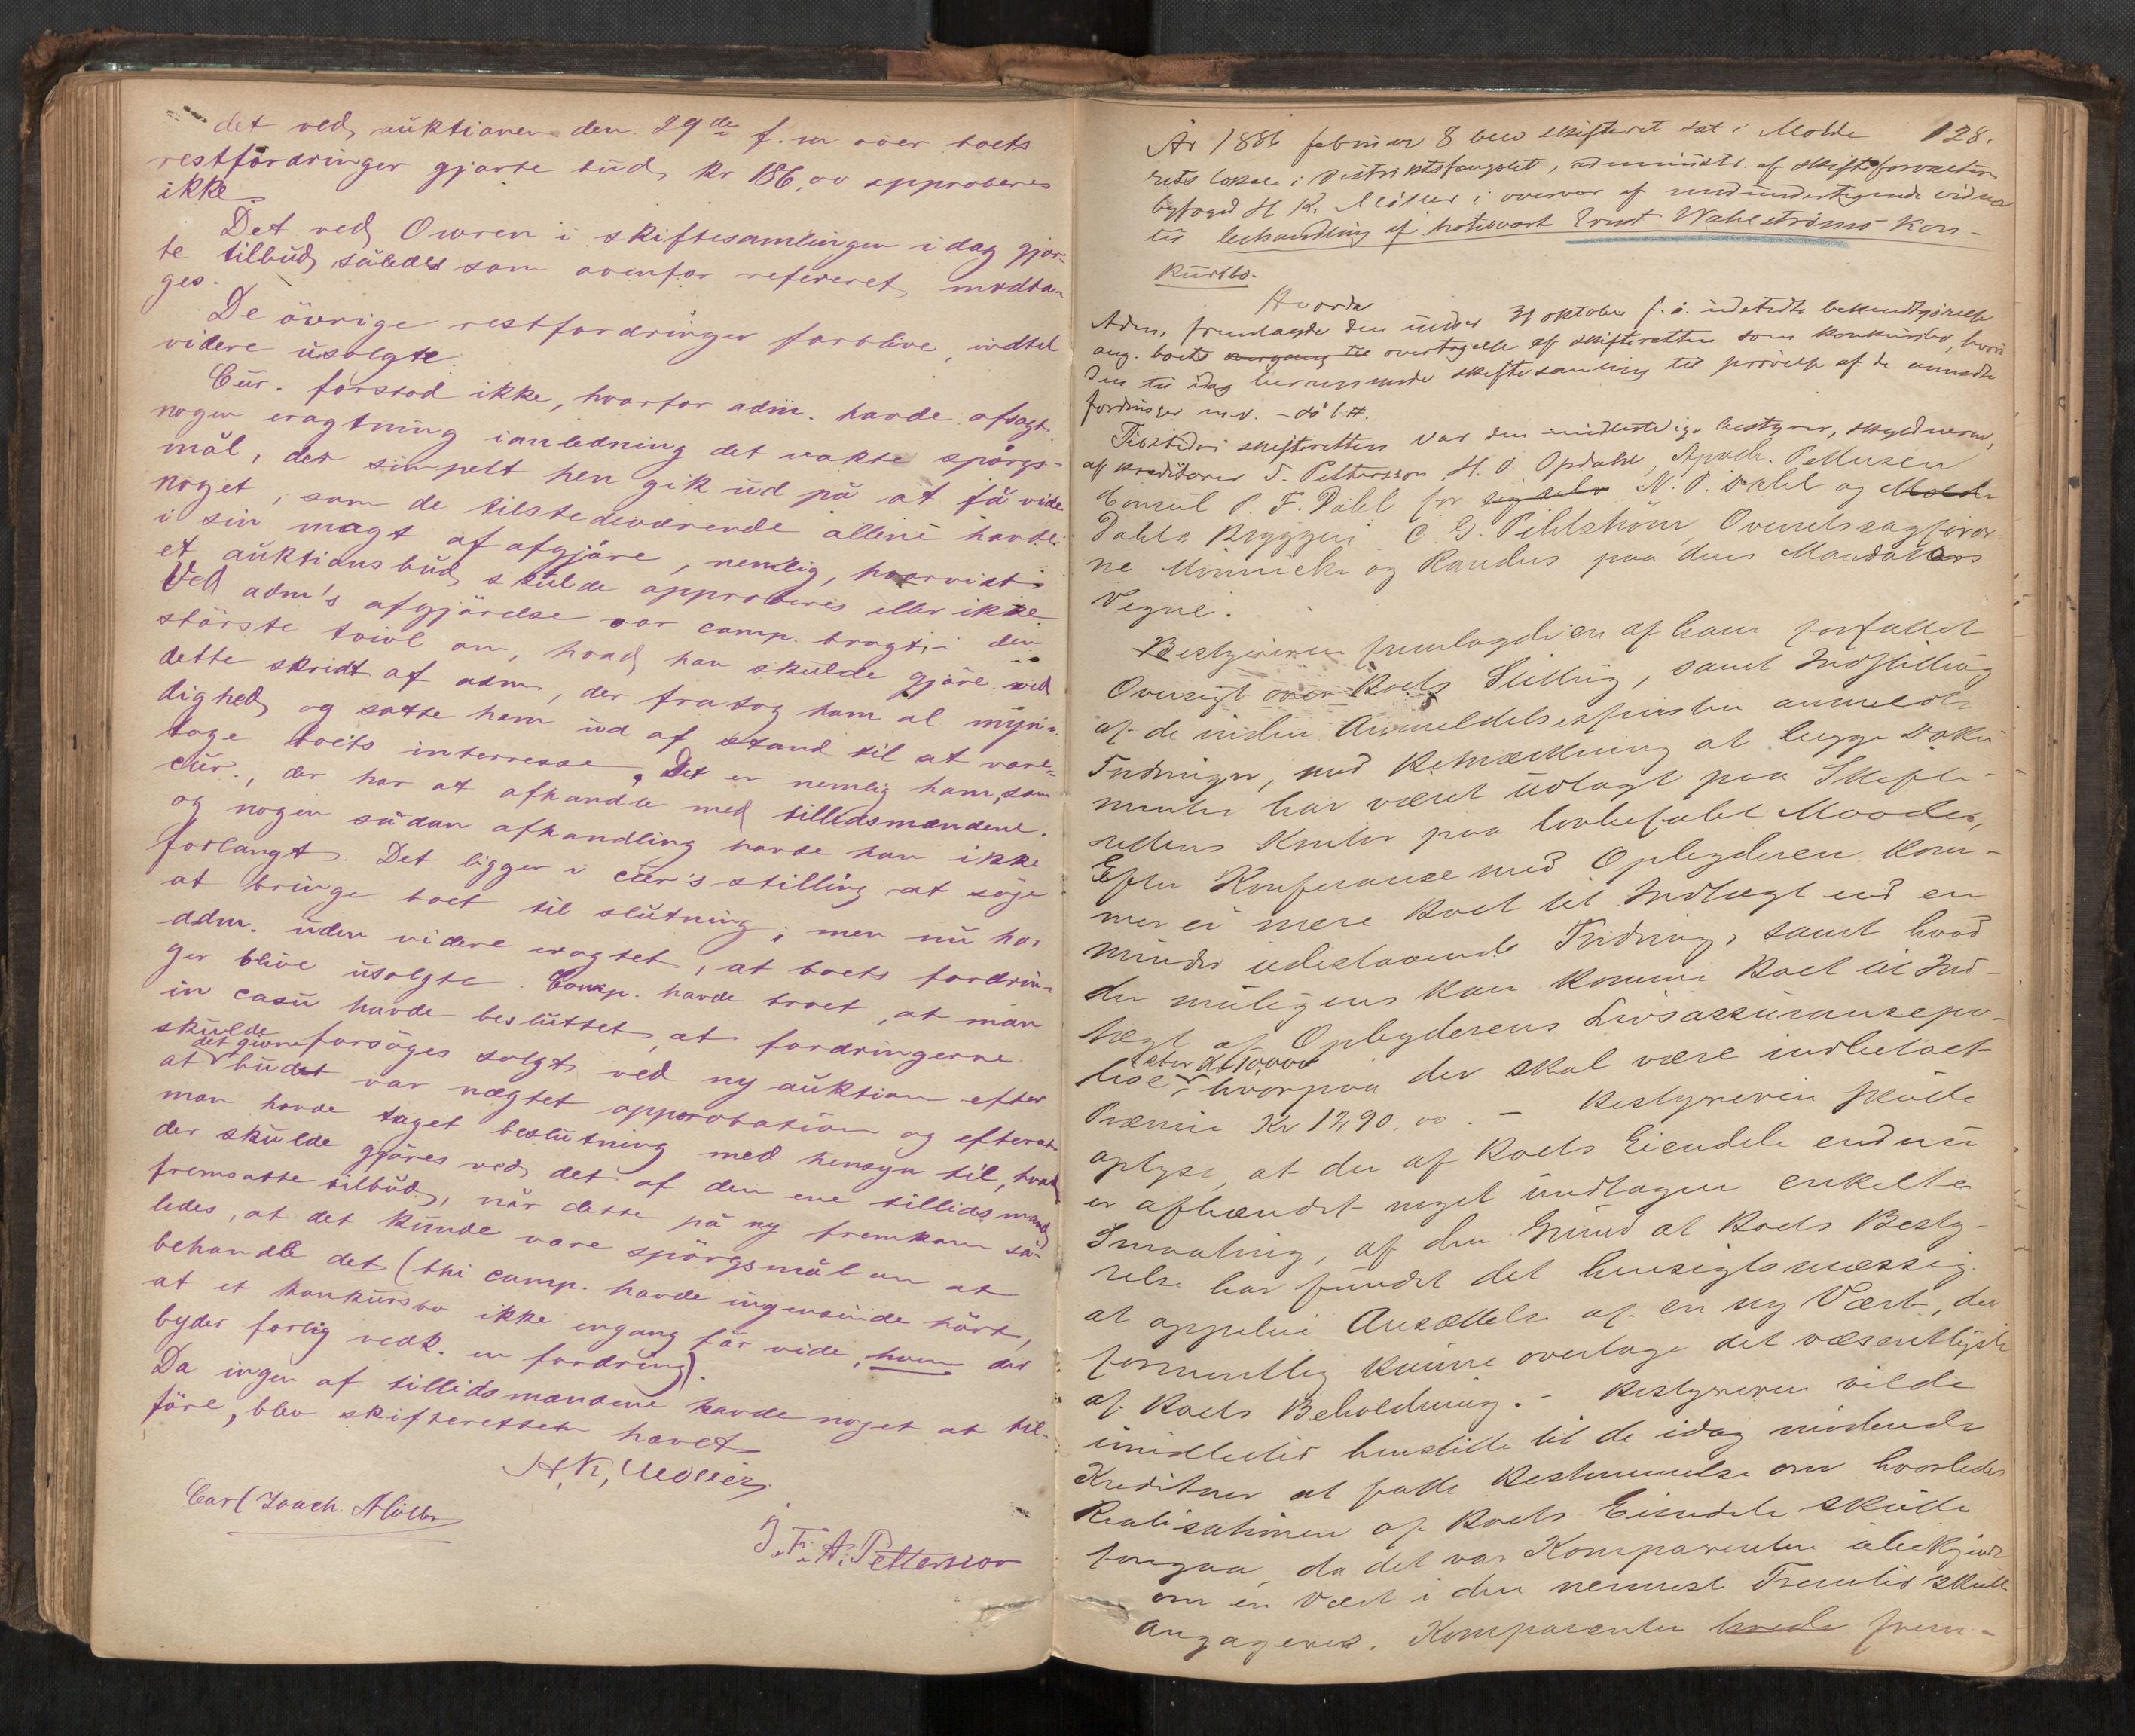 det ved auktionen den 29de f. m over boets
restfordringer gjorte bud, kr 186,00 approberes
ikke.
Det ved Owren i skiftesamlingen idag gjor-
te tilbud således som ovenfor refereret, modta-
ges.
De övrige restfordringer forblive, indtil
videre usolgte.
Cur. forstod ikke, hvorfor adm. havde afsagt
nogen eragtning ianledning det vakte spörgs-
mål, der simpelt hen gik ud på at få vide
noget, som de tilstedeværende allene havde
i sin magt af afgjöre, nemlig, hvorvidt
et auktionsbud skulde approberes eller ikke.
Ved adm's afgjörelse var comp. bragt i den
störste tvivl om, hvad han skulde gjöre ved
dette skridt af adm., der fratog ham al myn-
dighed og satte ham ud af stand til at vare-
tage boets interesse. Det er nemlig ham, som
cur., der har at afhandle med tillidsmændene.
og nogen sådan afhandling havde han ikke
forlangt. Det ligger i cur's stilling at söge
at bringe boet til slutning; men nu har
adm. uden videre eragtet, at boets fordrin-
ger blive usolgte. Comp. havde troet, at man
in casu havde besluttet, at fordringerne
skulde forsöges solgt ved ny auktion efter
at det givne budet var nægtet approbation og efterat
man havde taget beslutning med hensyn til, hvad
der skulde gjöres ved det af den ene tillidsmand
fremsatte tilbud, når dette på ny fremkom så-
ledes, at det kunde være spörgsmål om at
behandle det (thi comp. havde ingensinde hört,
at et konkursbo ikke engang får vide, hvem der
byder forlig vedk. en fordring).
Da ingen af tillidsmændene havde noget at til-
före, blev skifteretten hævet
H. K. Möller
Carl Joach. Möller
J. F. A. Pettersson
År 1886 februar 8 blev skifteret sat i Molde 128.
rets lokale i Distriktsfængslet, administr. af skifteforvalteren
byfoged H K. Möller i overvær af medundertegnede vidner
til behandling af hotelvært Ernst Wahlströms Kon-
kursbo.
Hvorda
Adm. fremlagde den under 31 oktober f. å. udstedte bekjendtgjörelse
ang. boets overgang til overtagelse af skifteretten som konkursbo, hvori
den til idag berammede skiftesamling til prövelse af de anmeldte
fordringer m.v. -
Tilstede i skifteretten var den midlertidige bestyrer, skyldneren,
af kreditorer J. Pettersson H. O. Opdahl, Apoth.
Consul P. F. Dahl for sig selv N. P. Dahl og Molde
Dahls Bryggeri C G. Pihlström, Overretssagförer-
ne og Randers paa deres Mandanters
Vegne.
Bestyreren fremlagde en af ham forfattet
Oversigt over Boets Stilling, samt Indstilling
af de inden Anmeldelsesfristen anmeldte
Fordringer, med Bemærkning at begge Doku-
menter har været udlagt paa Skifte-
rettens Kontor paa lovbefalet Maade,
Efter Konferanse med Opbyderen kom-
mer ei mere Boet til Indtægt end en
mindre udestaaende Fordring, samt hvad
der muligens kan komme Boet til Ind-
tægt af Opbyderens Livsassurancepo-
lise stor kr 10,000 hvorpaa der skal være indbetalt
Præmie Kr 1290.00. - Bestyreren skulde
oplyse, at der af Boets Eiendele endnu
er afhændet noget undtagen enkelte
Smaating, af den Grund at Boets Besty-
relse har fundet det hensigtsmæssig
at oppebie Ansættelse af en ny Vært, der
formentlig kunne overtage det væsentligste
af Boets Beholdning. - Bestyreren vilde
imidlertid henstille til de idag mödende
Kreditorer at fatte Bestemmelse om hvorledes
Realisationen af Boets Eiendele skulde
foregaa, da det var Komparenten ubekjendt
om en Vært i den nærmeste Fremtid skulde
angageres. Komparenten havde frem-